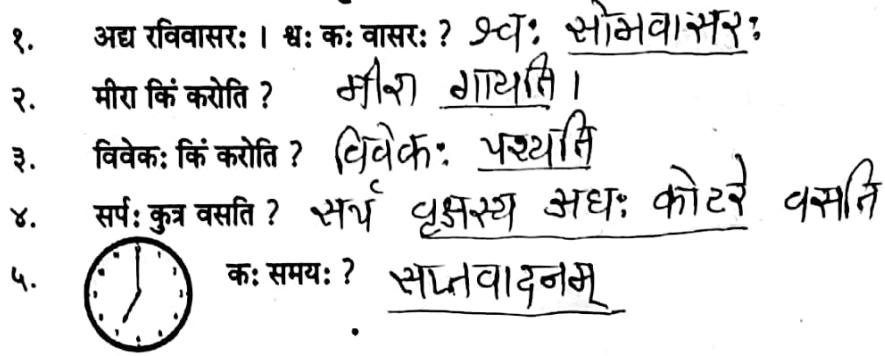 १. अद्य रविवासरः । श्वः कः वासरः ? श्वः सोमवासरः
२. मीरा किं करोति ? मीरा गायति ।
३. विवेकः किं करोति ? विवेकः पश्यति
४. सर्पः कुत्र वसति ? सर्प वृक्षस्य अधः कोटरे वसति
५. कः समयः ? सप्तवादनम्